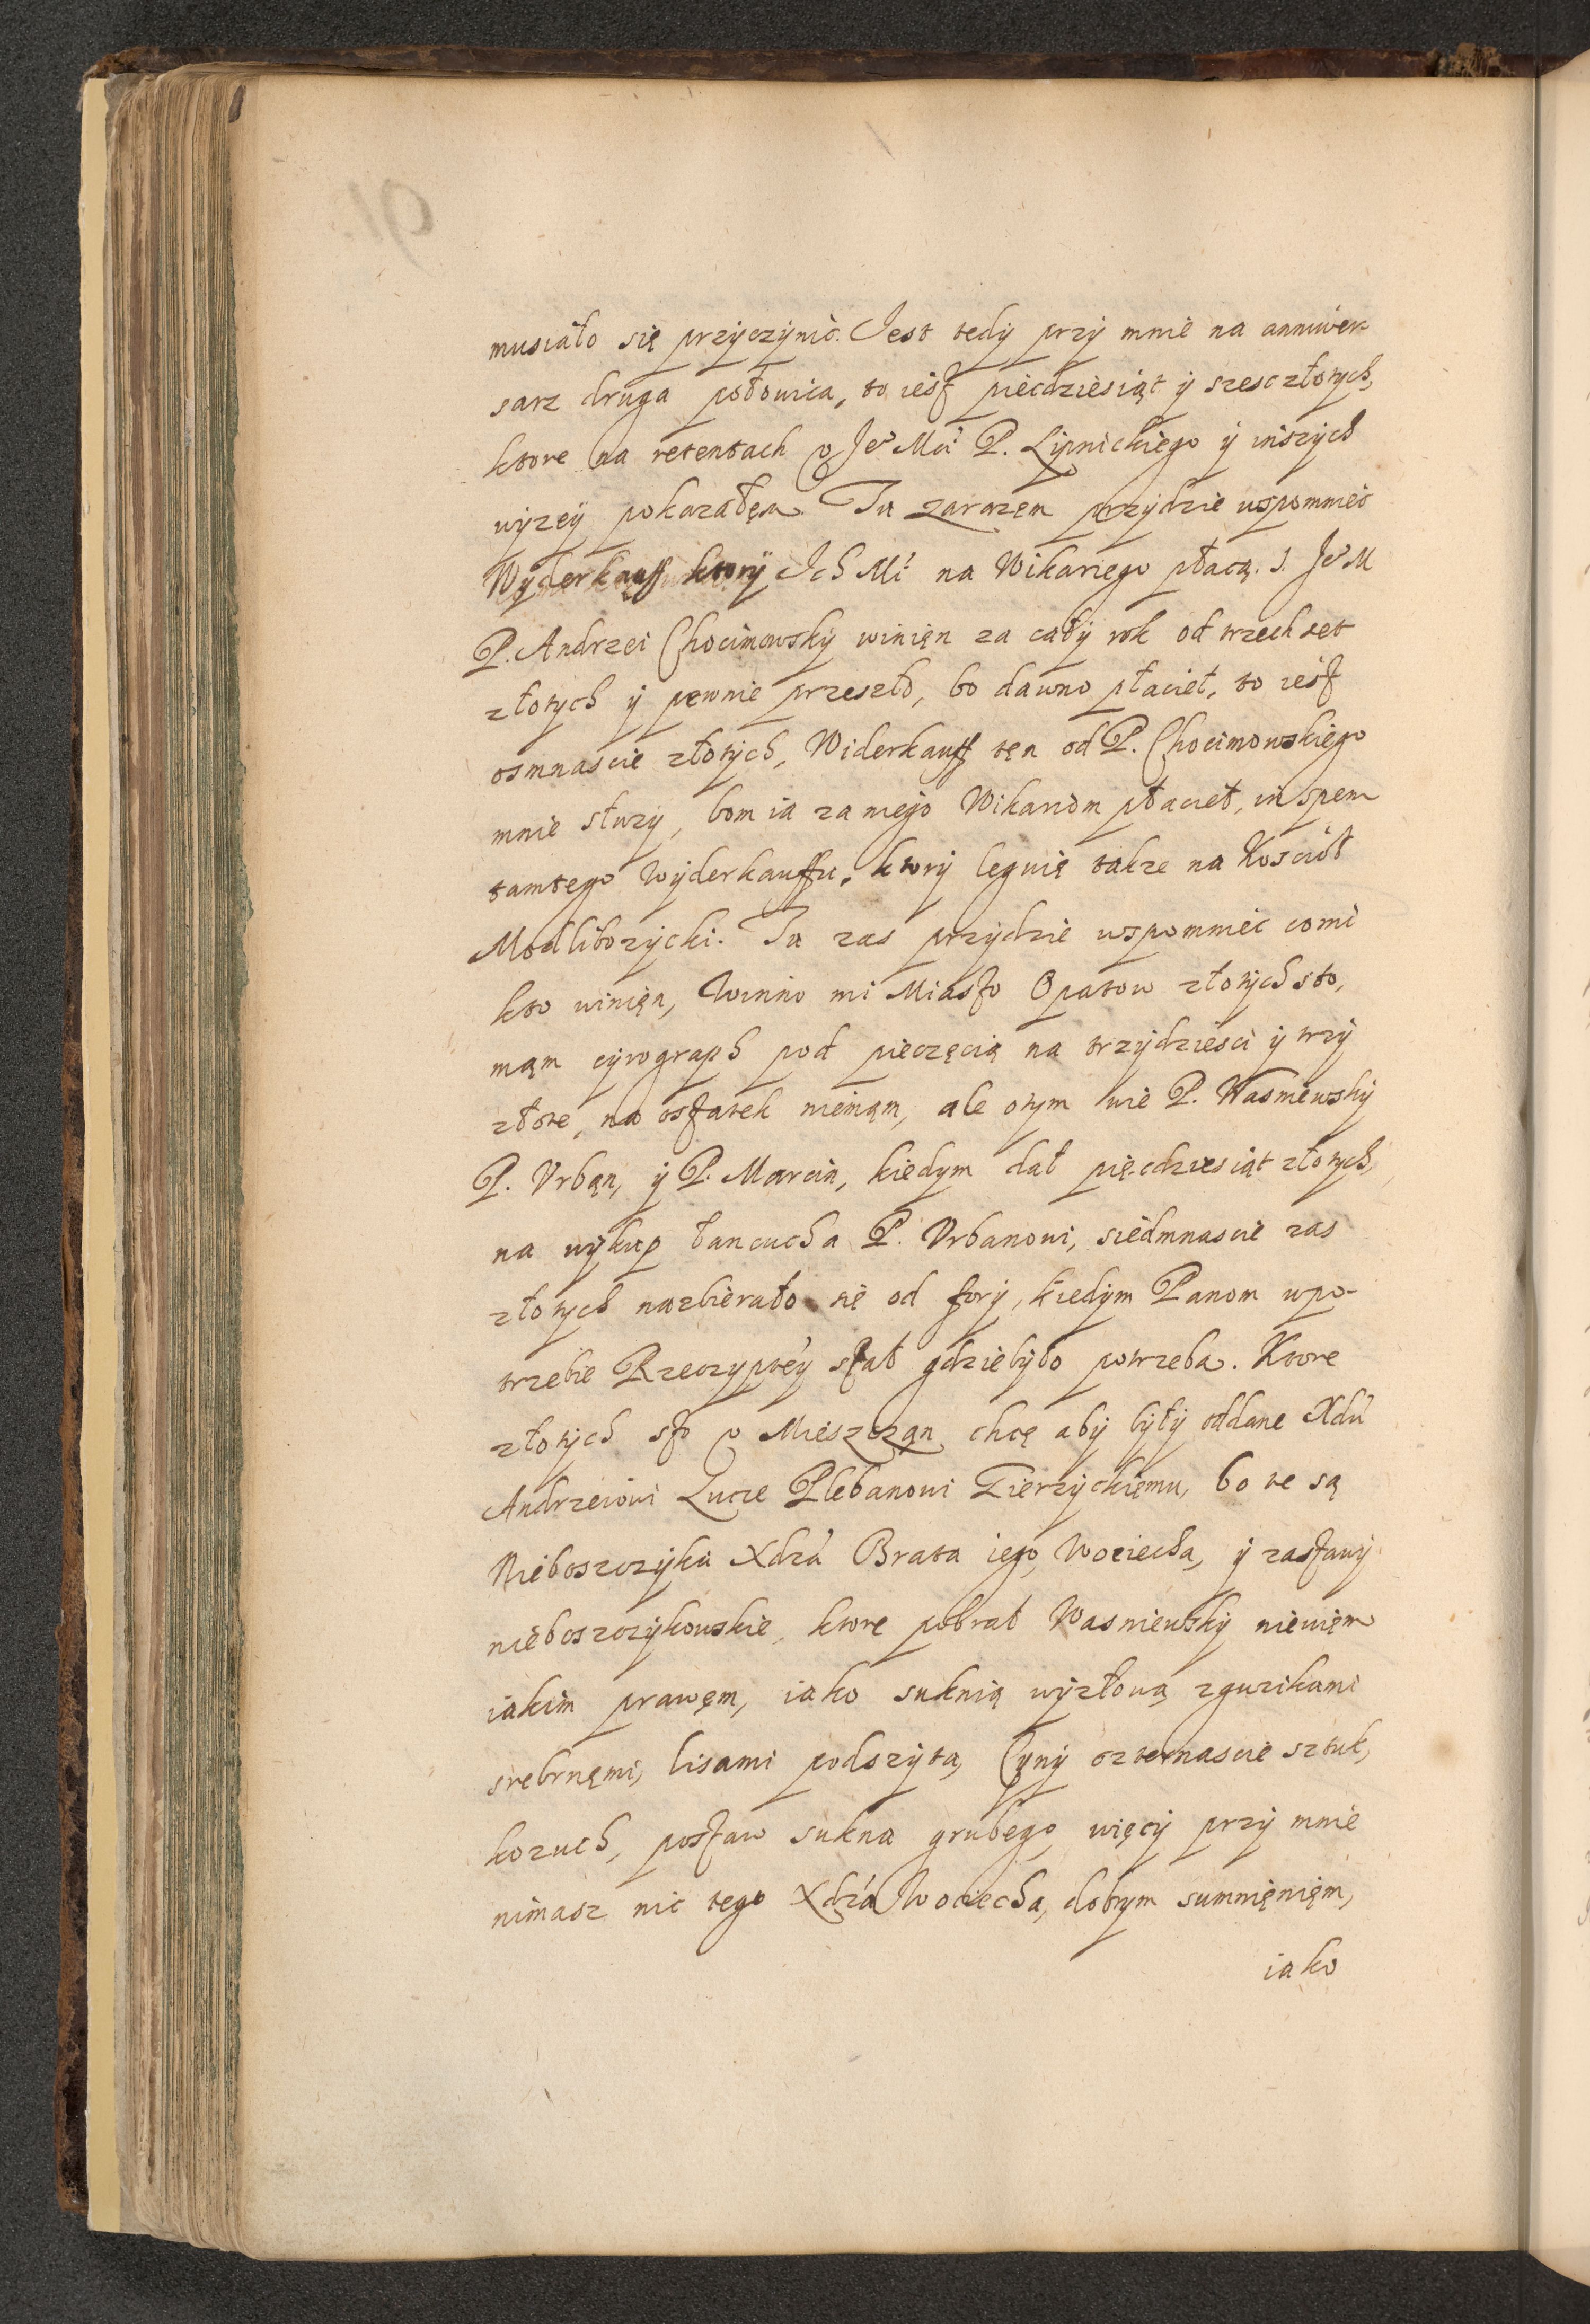 musiało się przyczynic. Jest tedy przy mnie na anniwer-
sarz druga połowica, to iest pięcdziesiąt y szesc złotych,
ktore na retentach v Je° Mci P. Lipnickiego y inszych
wyzey pokazałęm. Tu zarazęm przydzie wspommiec
Wyderkauff ktory Ich Mć na Wikariego płacą. J. Je° M
P. Andrzei Chocimowsky winięn za cały rok od trzech set
złotych y pewnie przeszło, bo dawno płacieł, to iest
osmnascie złotych, Widerkauff tęn od P. Chocimowskiego
mnie słuzy, bom ia za niego Wikariom płacieł, in spem
tamtego Wyderkauffu, ktory leguię takze na Kosciół
Modliborzycki. Tu zas przydzie wspommiec co mi
kto winięn, Winno mi Miasto Opatow złotych sto,
mąm cyrograph pod pieczęcią na trzydziesci y trzy
złote, na ostatek niemąm, ale o tym wie P. Wasniewsky
P. Vrbąn, y P. Marcin, kiedym dał pięcdziesiąt złotych,
na wykup łancucha P. Vrbanowi, siedmnascie zas
złotych nazbierało się od fory, kiedym Panom w po-
trzebie Rzeczyptey słał gdzie było potrzeba. Ktore
złotych sto v Mieszcząn chcę aby były oddane Xdu
Andrzeiowi Lucze Plebanowi Gierzyckięmu, bo te są
Nieboszczyka Xdza Brata iego, Wociecha, y zastawy
nieboszczykowskie, ktore pobrał Wasniewsky niewięm
iakim prawęm, iako suknią wyzłową z guzikami
srebrnęmi, lisami podszytą, Cyny czternascie sztuk,
kozuch, postaw sukna grubego, więcy przy mnie
nimasz nic tego Xdza Wociecha, dobrym sumnięnięm,
iako